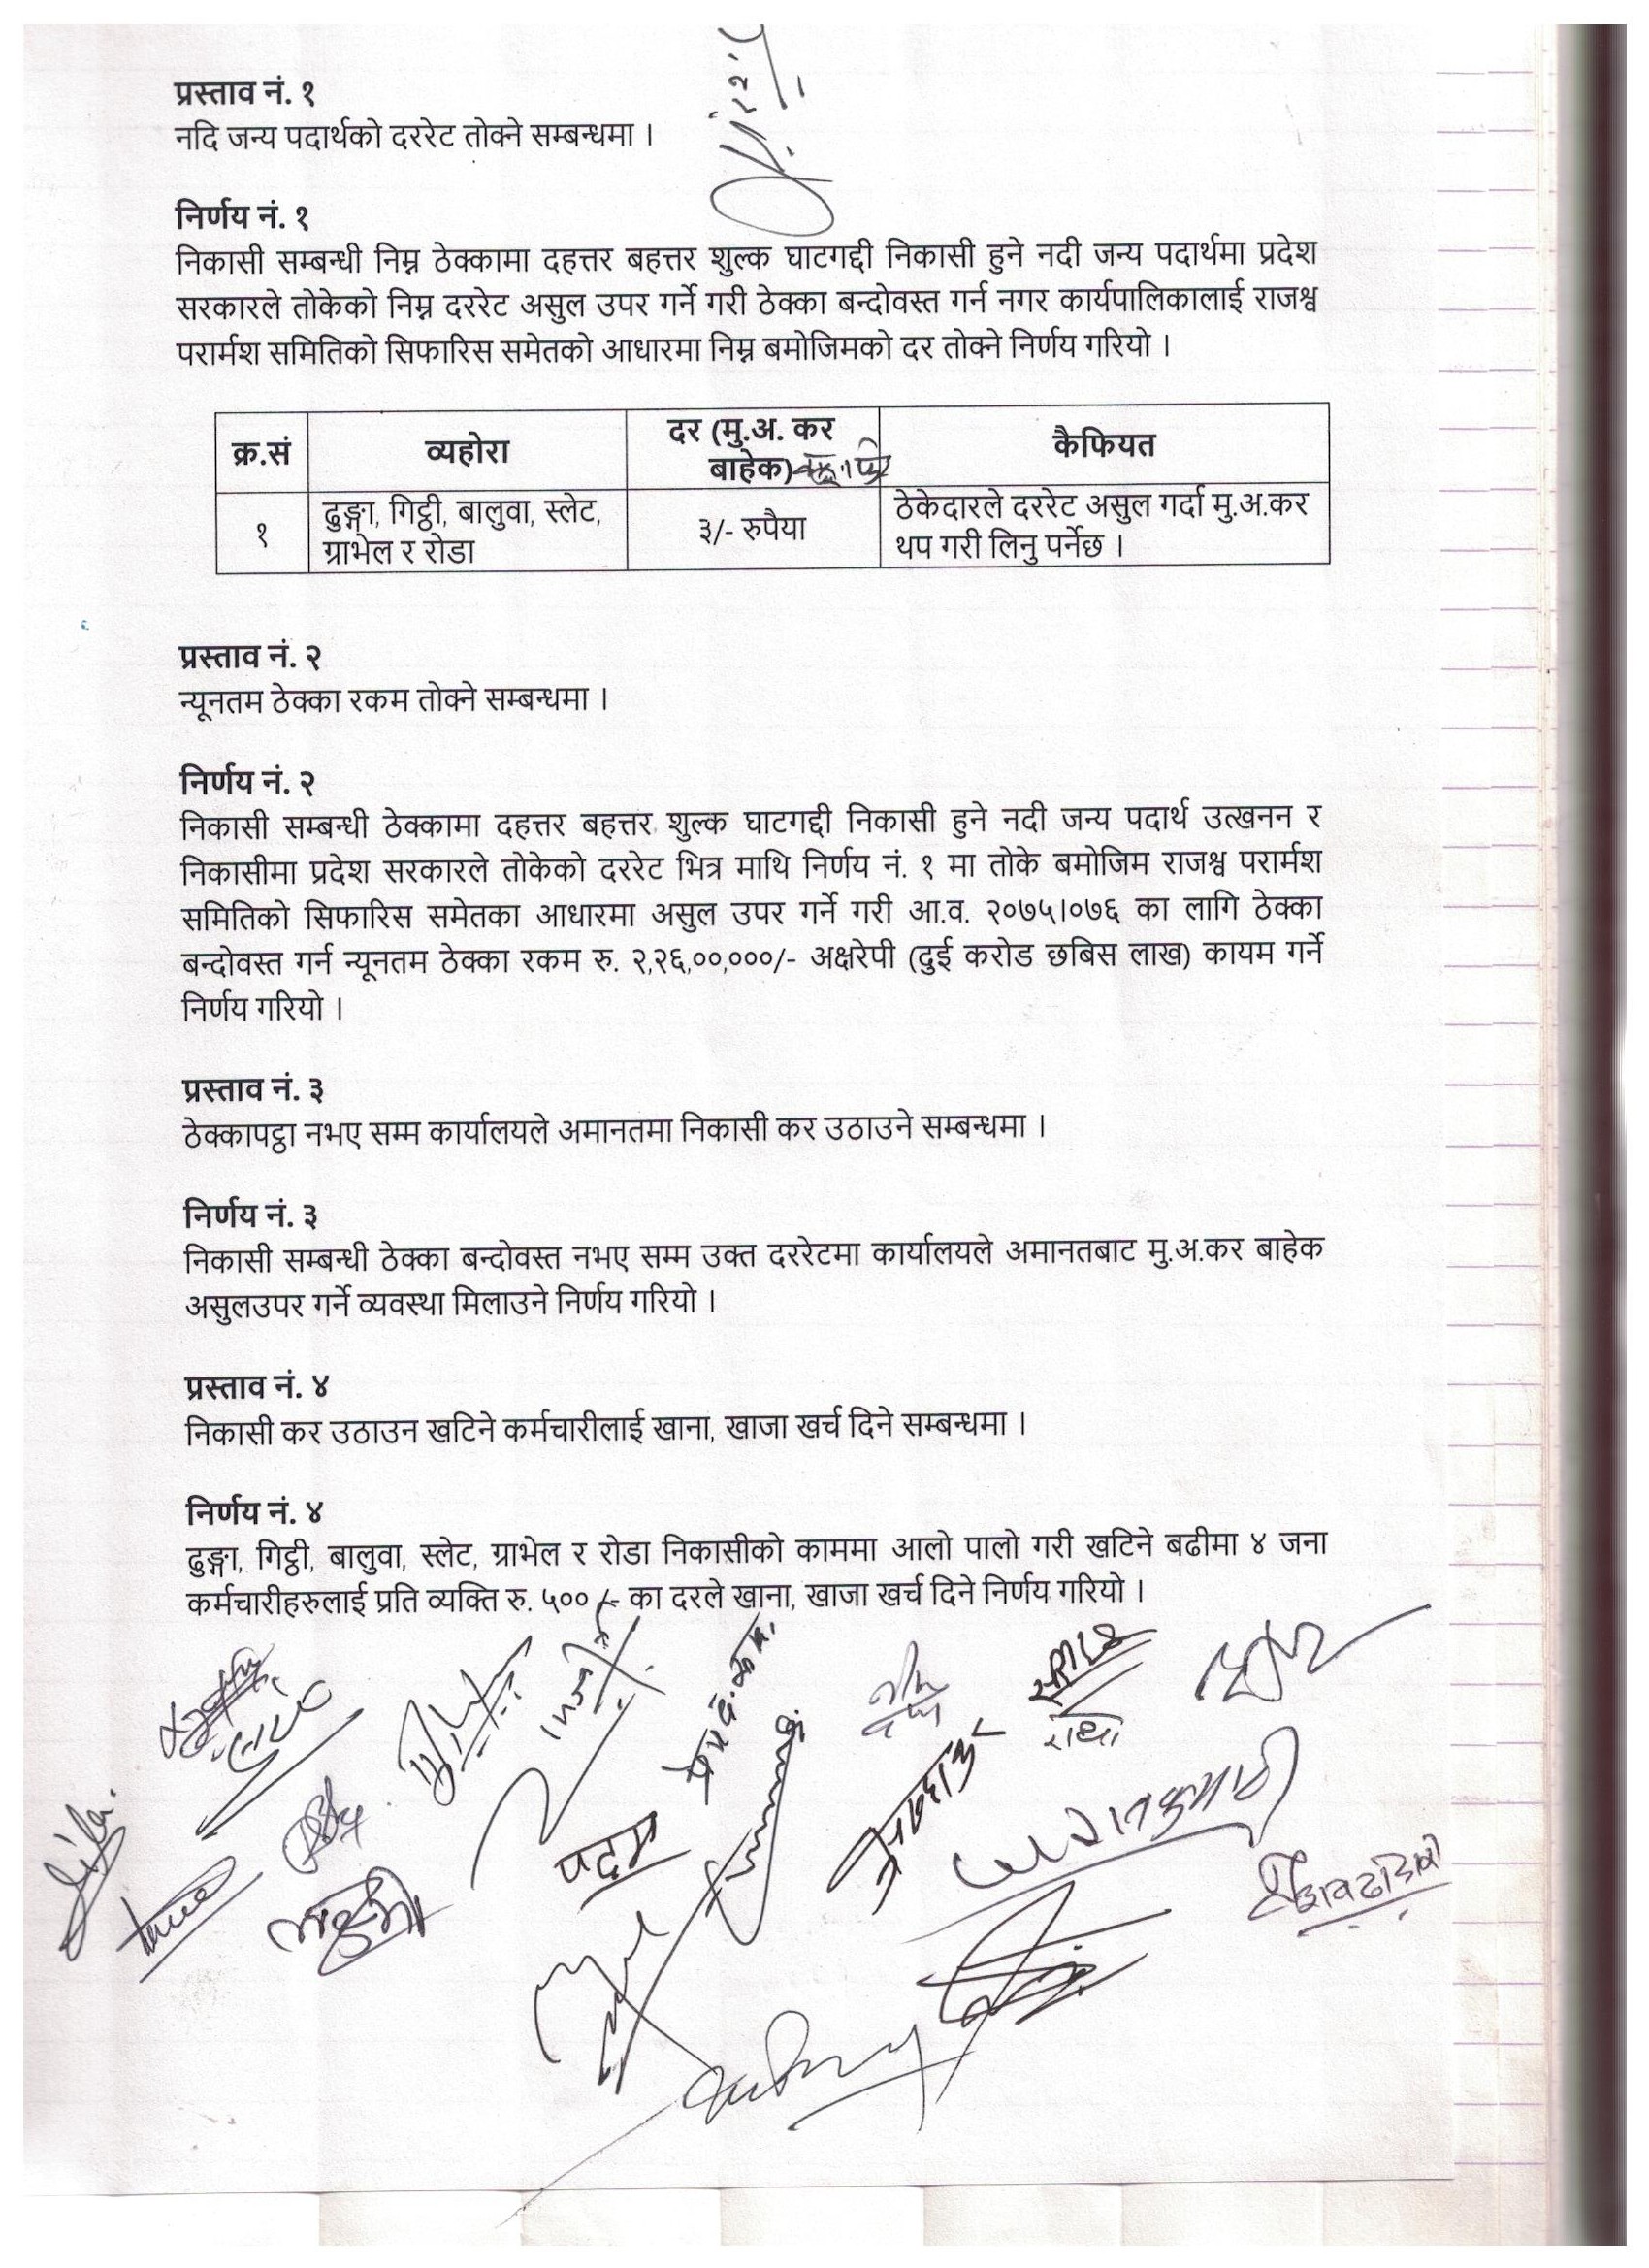 प्रस्ताव नं. १
नदि जन्य पदार्थको दररेट तोक्ने सम्बन्धमा ।
निर्णय नं. १
निकासी सम्बन्धी निम्न ठेक्कामा दहत्तर बहत्तर शुल्क घाटगद्दी निकासी हुने नदी जन्य पदार्थमा प्रदेश
सरकारले तोकेको निम्न दररेट असुल उपर गर्ने गरी ठेक्का बन्दोवस्त गर्न नगर कार्यपालिकालाई राजश्व
परार्मश समितिको सिफारिस समेतको आधारमा निम्न बमोजिमको दर तोक्ने निर्णय गरियो ।
क्र.सं व्यहोरा दर (मु.अ. कर बाहेक) कैफियत
१ ढुङ्गा, गिट्ठी, बालुवा, स्लेट, ३/- रुपैया ठेकेदारले दररेट असुल गर्दा मु.अ.कर
ग्राभेल र रोडा थप गरी लिनु पर्नेछ ।
प्रस्ताव नं. २
न्यूनतम ठेक्का रकम तोक्ने सम्बन्धमा ।
निर्णय नं. २
निकासी सम्बन्धी ठेक्कामा दहत्तर बहत्तर शुल्क घाटगद्दी निकासी हुने नदी जन्य पदार्थ उत्खनन र
निकासीमा प्रदेश सरकारले तोकेको दररेट भित्र माथि निर्णय नं. १ मा तोके बमोजिम राजश्व परार्मश
समितिको सिफारिस समेतका आधारमा असुल उपर गर्ने गरी आ.व. २०७५।०७६ का लागि ठेक्का
बन्दोवस्त गर्न न्यूनतम ठेक्का रकम रु. २,२६,००,०००/- अक्षरेपी (दुई करोड छबिस लाख) कायम गर्ने
निर्णय गरियो ।
प्रस्ताव नं. ३
ठेक्कापट्ठा नभए सम्म कार्यालयले अमानतमा निकासी कर उठाउने सम्बन्धमा ।
निर्णय नं. ३
निकासी सम्बन्धी ठेक्का बन्दोवस्त नभए सम्म उक्त दररेटमा कार्यालयले अमानतबाट मु.अ.कर बाहेक
असुलउपर गर्ने व्यवस्था मिलाउने निर्णय गरियो ।
प्रस्ताव नं. ४
निकासी कर उठाउन खटिने कर्मचारीलाई खाना, खाजा खर्च दिने सम्बन्धमा ।
निर्णय नं. ४
ढुङ्गा, गिट्ठी, बालुवा, स्लेट, ग्राभेल र रोडा निकासीको काममा आलो पालो गरी खटिने बढीमा ४ जना
कर्मचारीहरुलाई प्रति व्यक्ति रु. ५०० /- का दरले खाना, खाजा खर्च दिने निर्णय गरियो ।
राधा
पदम